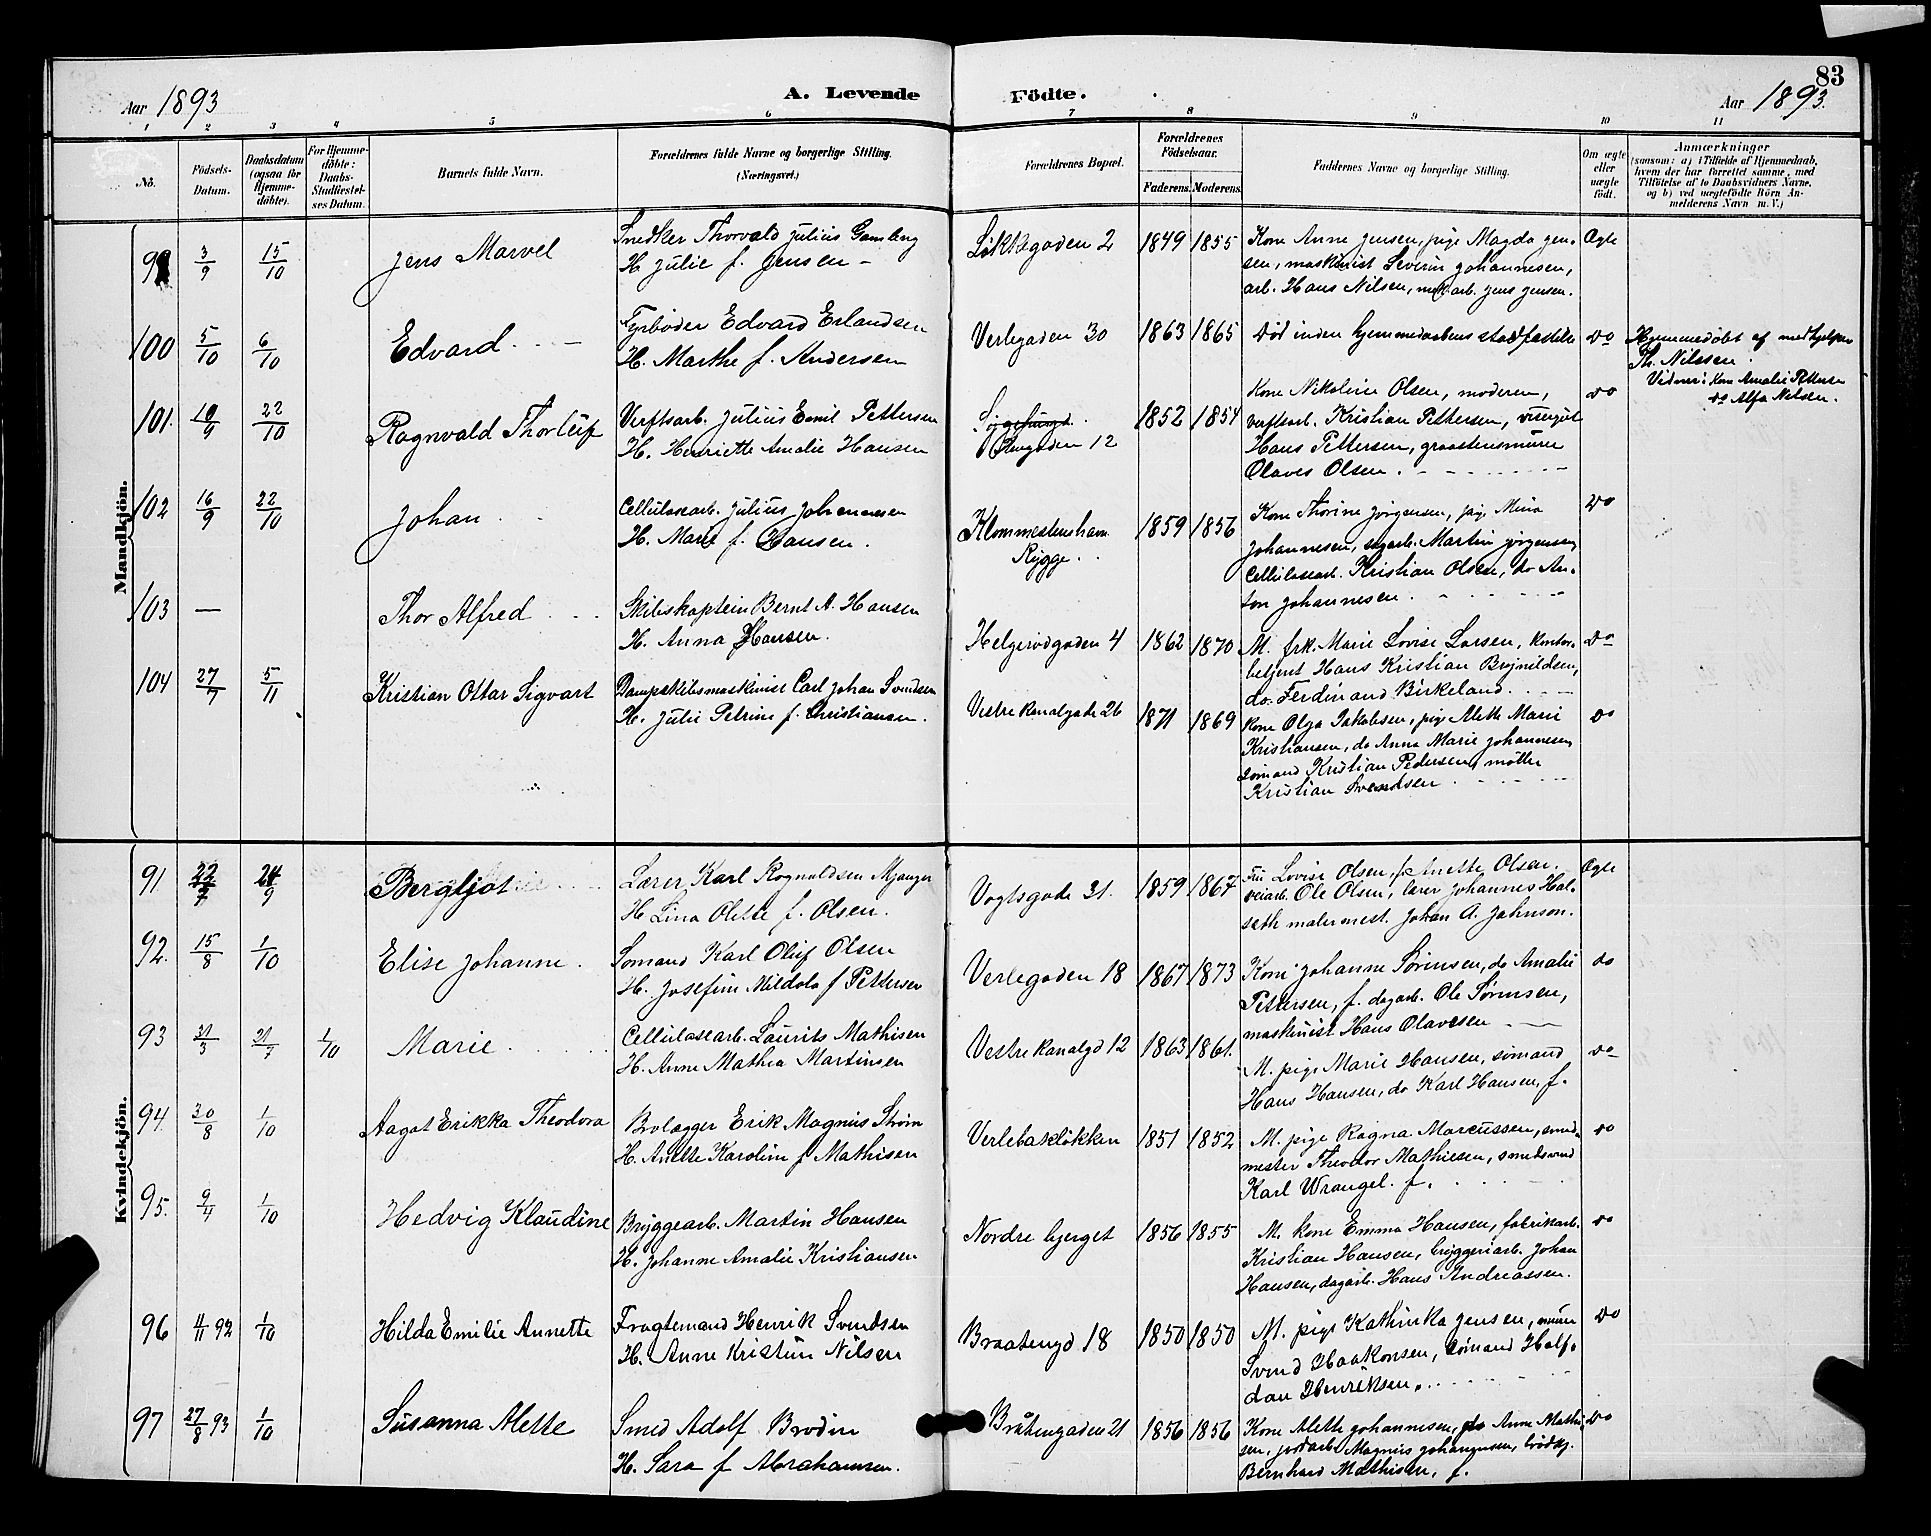 83
Aar 1893
A. Levende Födte.
Aar 1893.
1 2 3 4 5 6 7 8 9 10 11
No.
Födsels-
Datum.
Daabsdatum
(ogsaa for
Hjemme-
döbte).
For Hjemme-
döbte:
Daabs-
Stadfæstel-
ses Datum.
Barnets fulde Navn.
Forældrenes fulde Navne og borgerlige Stilling.
(Næringsvei.)
Forældrenes Bopæl.
Forældrenes
Födselsaar.
Faderens. Moderens.
Faddernes Navne og borgerlige Stilling.
Om ægte
eller
uægte
födt.
Anmærkninger
(saasom: a) i Tilfælde af Hjemmedaab,
hvem der har forrettet samme, med
Tilföielse af to Daabsvidners Navne,
og b) ved uægtefödte Börn An-
melderens Navn m. V.)
Mandkjön.
99 3/9 15/10 Jens Marvel
Snedker Thorvald Julius Gamleng
H. Julie f. Jensen -
Løkkegaden 2 1849 1855
Kone Anne Jensen, pige Magda Jen-
sen, maskinist Severin Johannesen,
arb. Hans Nilsen, mek arb. Jens Jensen.
Ægte
100 5/10 6/10 Edvard
Fyrbøder Edvard Erlandsen
H. Marthe f. Andersen
Verlegaden 30 1863 1865
Død inden hjemmedaabens stadfæstelse
do
Hjemmedøbt af medhjelper
Th. Nilssen.
Vidner: Kone Amalie Pettersen
do Alfa Nilsen.
101. 10/9 22/10 Ragnvald Thorleif
Verftsarb. Julius Emil Pettersen
H. Henriette Amalie Hansen
gaden 12 1852 1854
Kone Nikoline Olsen, moderen,
verftsarb. Kristian Pettersen, visergut
Hans Pettersen, graastensmurer
Olaves Olsen.
do
102 16/9 22/10 Johan
Cellulosearb. Julius Johannesen
H. Marie f. Hansen.
Klommestensham
Rygge. 1859 1856
Kone Thorine Jørgensen, pig. Mina
Johannesen, sagarb. Martin Jørgensen,
Cellulosearb. Kristian Olsen, do An-
ton Johannesen.
do
103 — Thor Alfred
Skibskaptein Bernt A. Hansen
H. Anna Hansen.
Helgerødgaden 4 1862 1870
M. frk. Marie Lovise Larsen, kontor-
betjent Hans Kristian Brynildsen,
do. Ferdinand Birkeland.
do
104 27/7 5/11 Kristian Ottar Sigvart
Dampskibsmaskinist Carl Johan Svendsen
H. Julie Petrine f. Christiansen.
Vestre Kanalgade 26 1871 1869
Kone Olga Jakobsen, pige Alette Marie
Kristiansen, do Anna Marie Johannesen,
sømand Kristian Pedersen, møller
Kristian Svendsen
do
Kvindekjön.
91 22/7 24/9 Bergljot
Lærer Karl Rognaldsen Mjanger
H. Lina Olette f. Olsen.
Vogtsgade 31. 1859 1867
Fru Lovise Olsen, f. Anette Olsen.
veiarb. Ole Olsen, lærer Johannes Hal-
seth malermest. Johan A. Johnson.
Ægte
92. 15/8 1/10 Elise Johanne.
Sømand Karl Oluf Olsen
H. Josefine Mildala f Pettersen
Verlegaden 18 1867 1873
Kone Johanne Sørensen, do Amalie
Pettersen, f. dagarb. Ole Sørensen,
maskinist Hans Olavesen
do
93 31/3 21/7 1/10 Marie.
Cellulosearb. Laurits Mathisen
H. Anne Mathea Martinsen
Vestre Kanalgd 12 1863 1861.
M. pige Marie Hansen, sømand
Hans Hansen, do Karl Hansen, f.
do
94. 30/8 1/10 Aagot Erikka Theodora
Bolægger Erik Magnus Strøm
H. Anette Karoline f Mathisen
Verlebakløkken 1851 1852
M. pige Ragna Marcussen, smed-
mester Theodor Mathiesen, smedsvend
Karl Wrangel. f.
do
95. 9/4 1/10 Hedvig Klaudine
Bryggearb. Martin Hansen
H. Johanne Amalie Kristiansen
Nordre bjerget 1856 1855
M. kone Emma Hansen, fabrikarb.
Kristian Hansen, bryggeriarb. Johan
Hansen, dagarb. Hans Andreassen.
do
96 4/11 92 1/10 Hilda Emilie Annette
Fragtemand Henrik Svendsen
H. Anne Kristine Nilsen
Braatengd 18 1850 1850
M. pige Kathinka Jensen, murer
Svend Haakonsen, sømand Half-
dan Henriksen.
do
97 27/8 93 1/10 Susanna Alette
Smed Adolf Brodin
H. Sara f Abrahamsen.
Bråtengaden 21 1856 1856
Kone Alette Johannesen, do Anne Mathi-
sen, jordarb. Magnus Johannesen, brødkj.
Bernhard Mathisen, f.
do